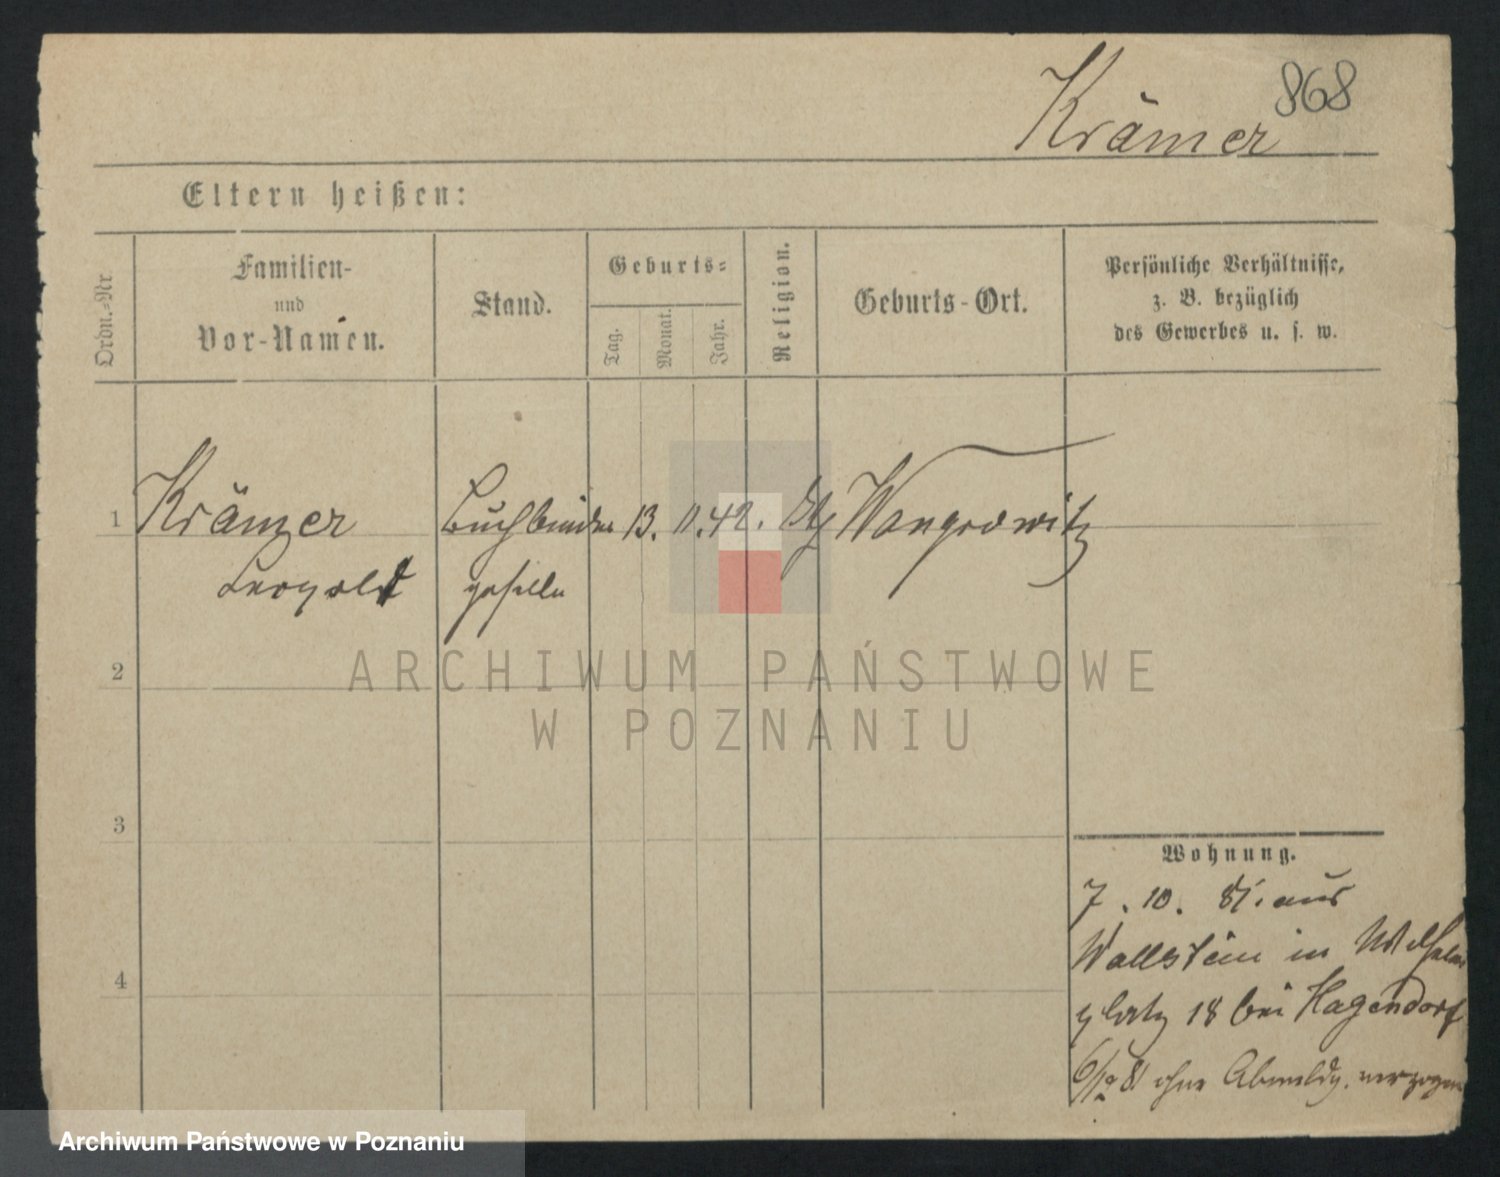 868
Krämer
Eltern heißen:
Ordn.-Nr.
Familien-
und
Vor-Namen.
Stand.
Geburts-
Tag.
Monat.
Jahr.
Religion.
Geburts-Ort.
Persönliche Verhältnisse,
z. B. bezüglich
des Gewerbes u. s. w.
1 Krämer Buchbinder 13. 11. 42. Wongrowitz
Leopold geselle
2
3
4
Wohnung.
7. 10. 81. aus
Wallstein in Wilhelms
platz 18 bei Hagendorf
ohne Abmeldg. verzogen
ARCHIWUM PAŃSTWOWE
W POZNANIU
Archiwum Państwowe w Poznaniu